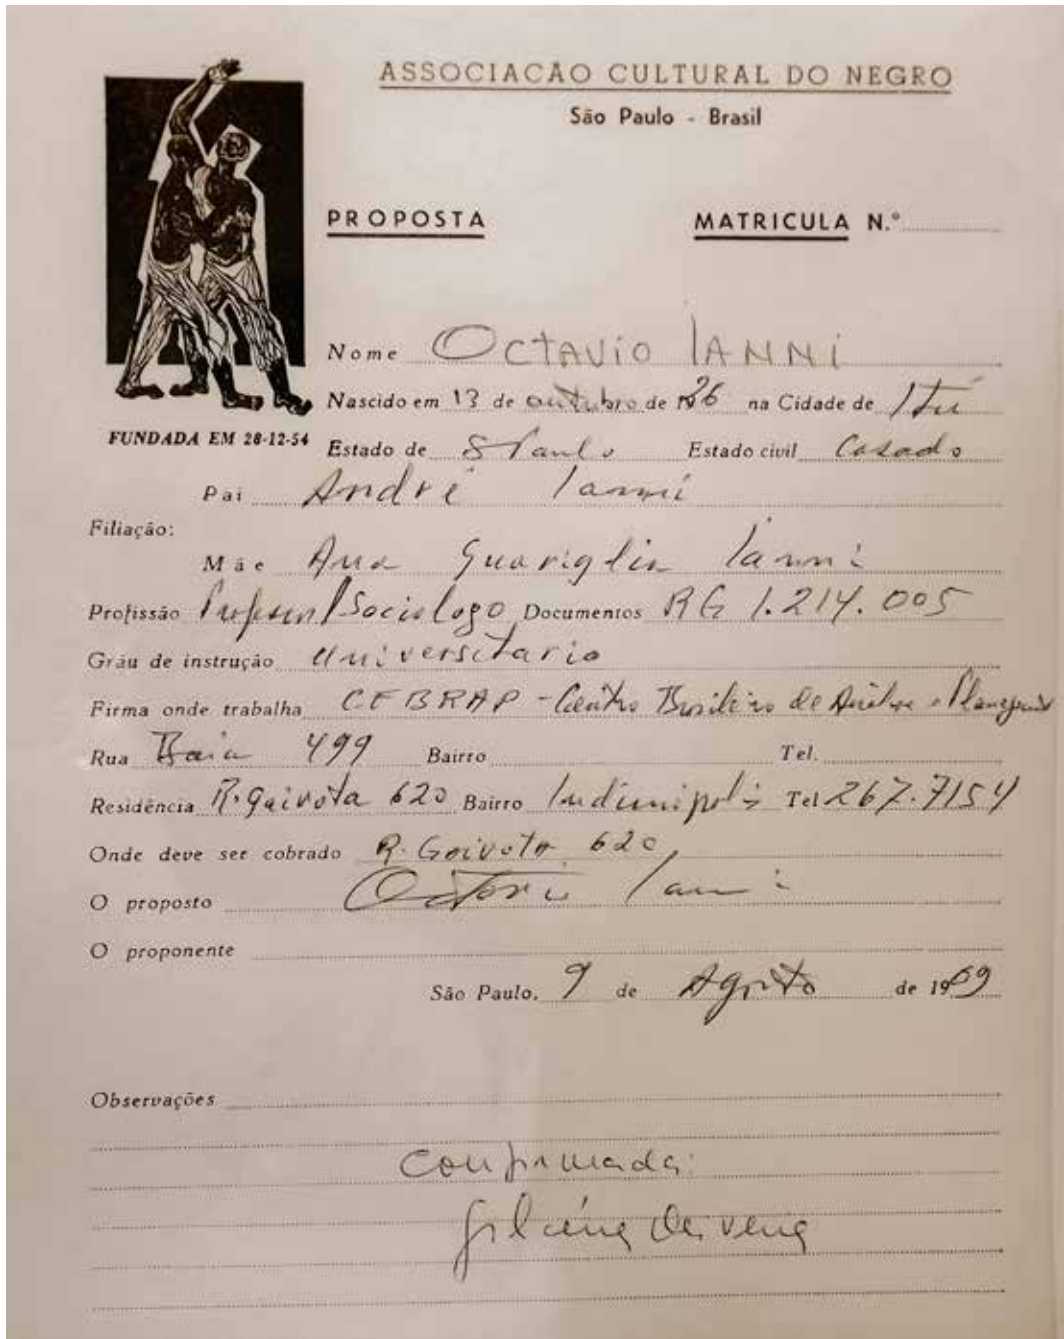 ASSOCIACÃO CULTURAL DO NEGRO
São Paulo - Brasil
PROPOSTA MATRICULA N.º
Nome OCTAVIO IANNI
Nascido em 13 de outubro de 1926 na Cidade de Itú
FUNDADA EM 28-12-54
Estado de S Paulo Estado civil Casado
Pai André Ianni
Filiação:
Mãe Ana Guariglia Ianni
Profissão Professor/Sociologo Documentos RG 1.214.005
Gráu de instrução Universitario
Firma onde trabalha CEBRAP - Centro Brasileiro de Análise e Planejamento
Rua Baia 499 Bairro Tel.
Residência R. Gaivota 620 Bairro Indianópolis Tel 267.7154
Onde deve ser cobrado R. Gaivota 620
O proposto Octavio Ianni
O proponente
São Paulo, 9 de Agosto de 1969
Observações
confirmada: